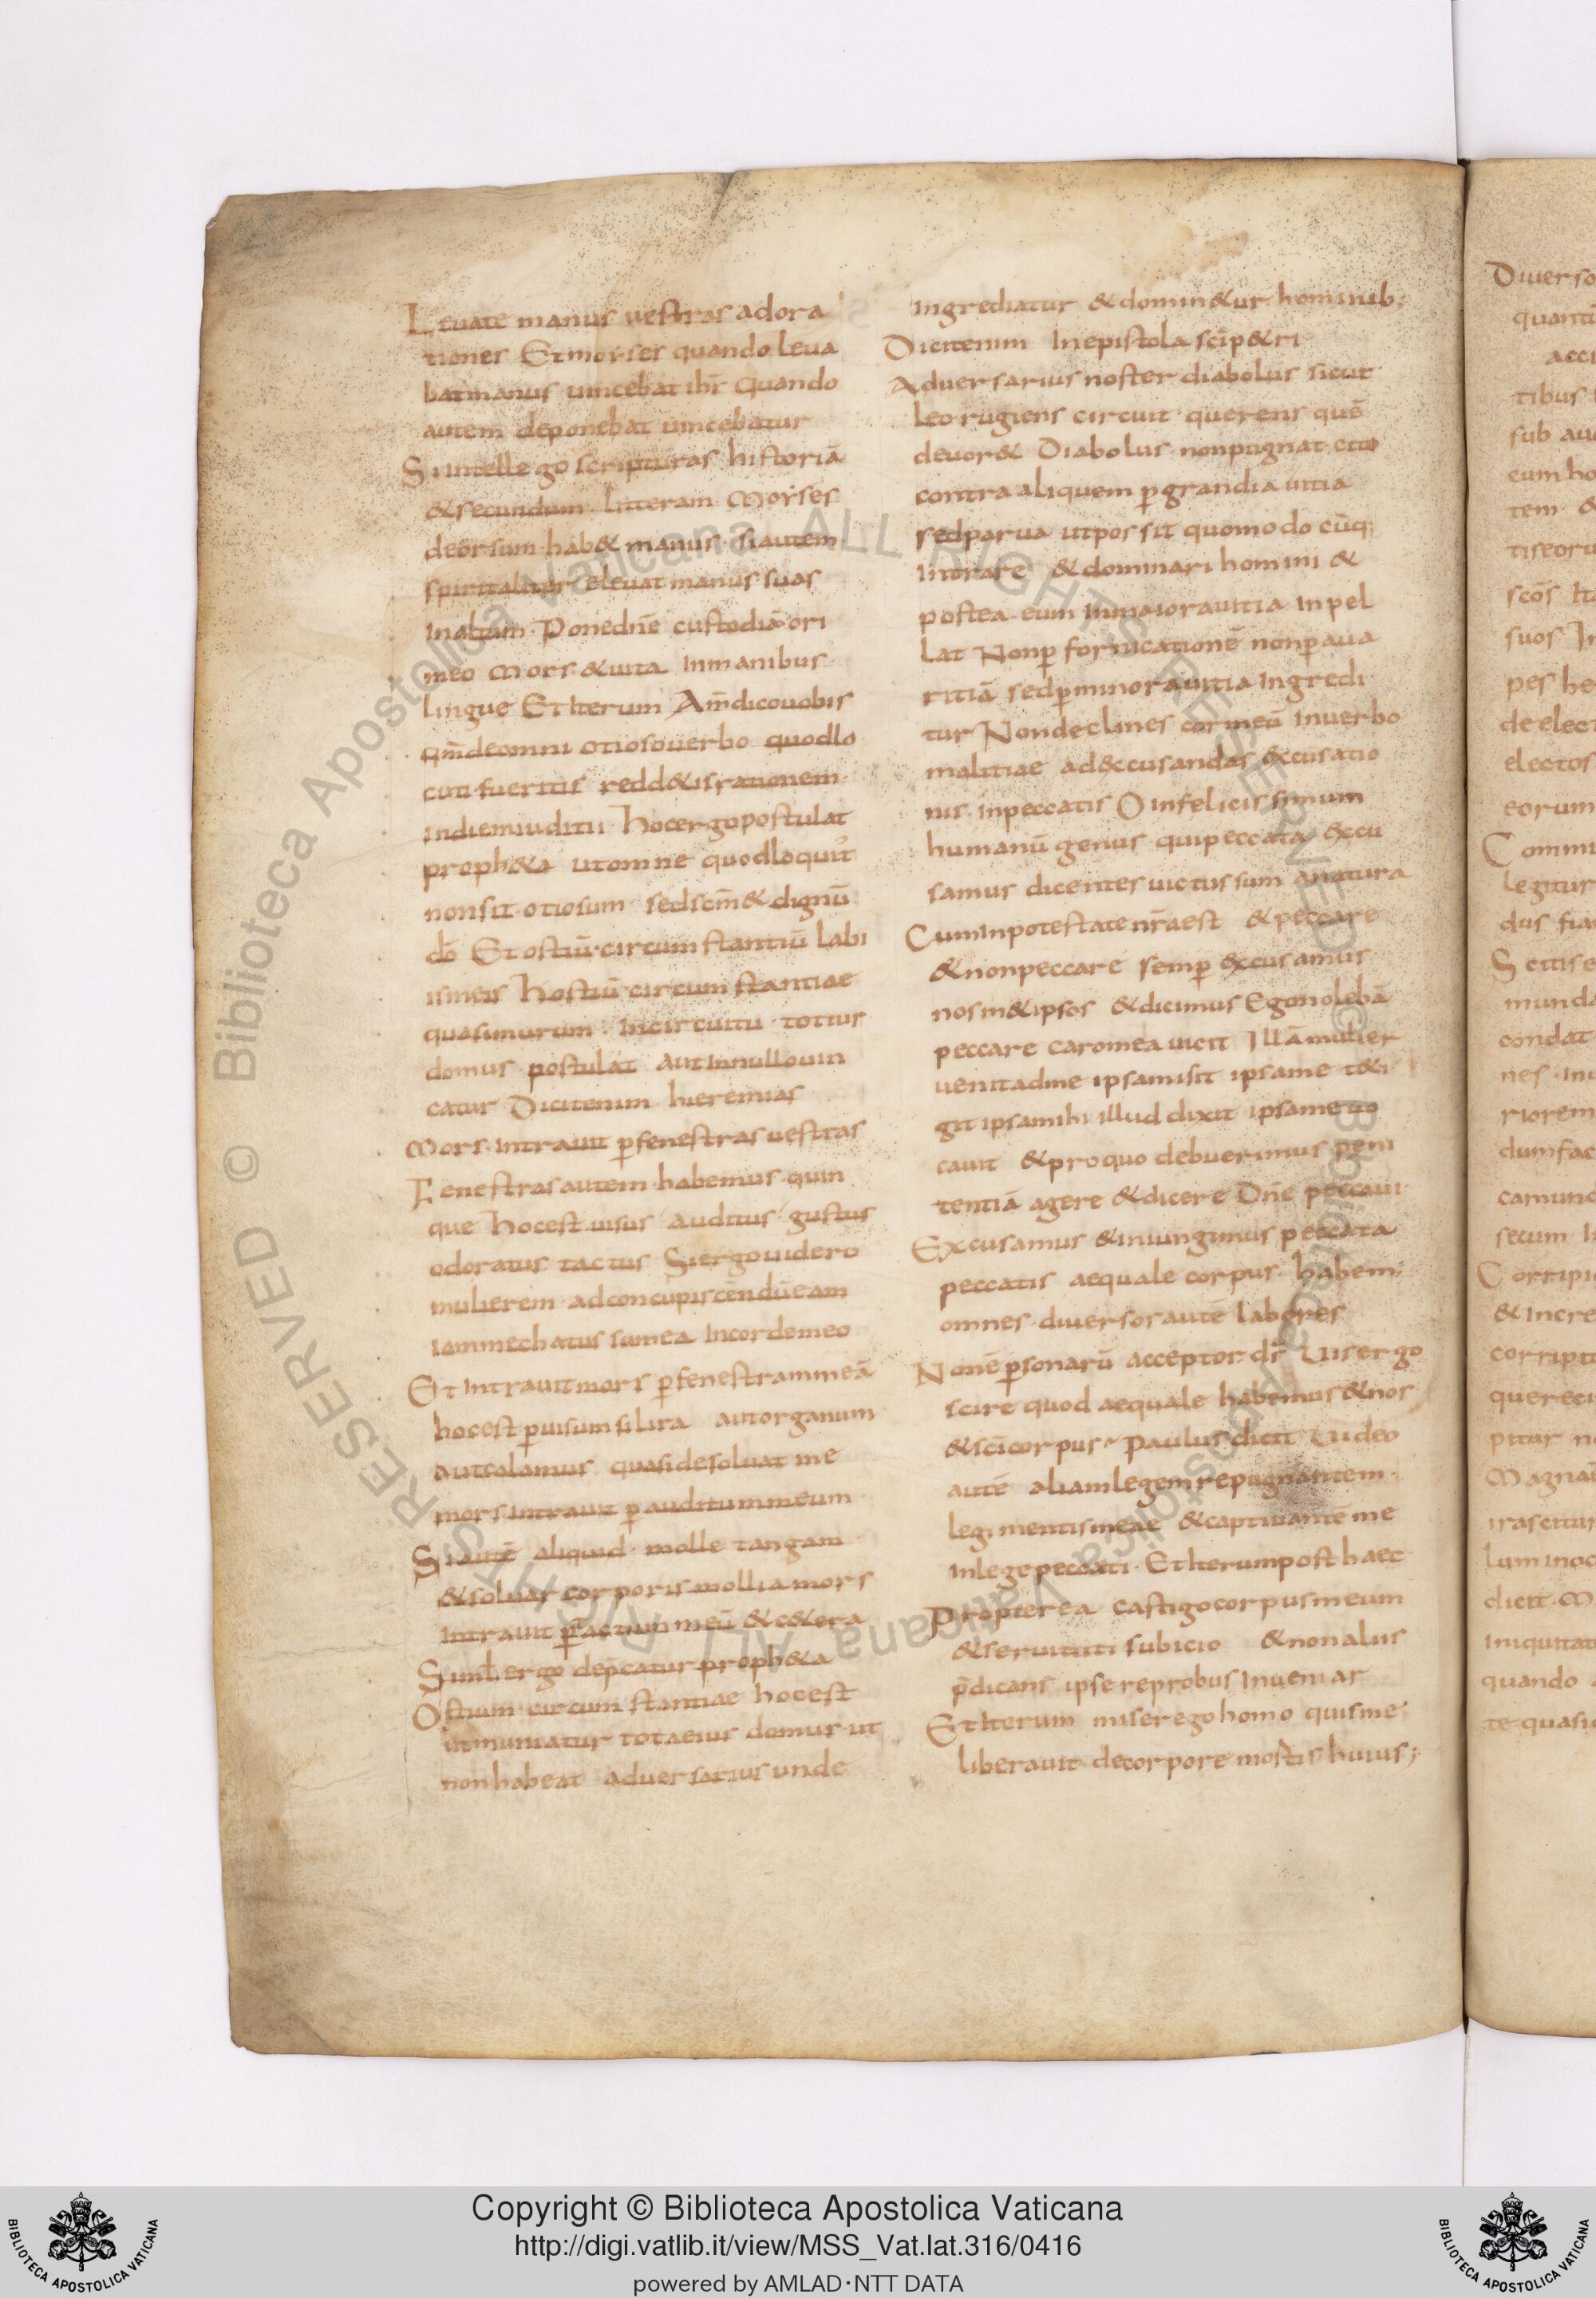 Leuate manus uestras adora
tiones Et moyses quando leua
bat manus uincebat ihr̄ Quando
autem deponebat uincebatur
Si intellego scripturas historiā
& secundum litteram Moyses
deorsum hab& manus si autem
spiritaliter eleuat manus suas
In altum Pone dn̄e custodiā ori
meo Mors & uita In manibus
lingue Et Iterum Am̄ dico uobis
qm̄ de omni otioso uerbo quod lo
cuti fueritis redd&is rationem
in die iuditii hoc ergo postulat
proph&a ut omne quod loquit̄
non sit otiosum sed scm̄ & dignū
dō Et ostiū circum stantiū labi
is meis hostiū circum stantiae
quasi murum in circuitu totius
domus postulat aut In nullo uin
catur Dicit enim hieremias
Mors Intrauit p̱ fenestras uestras
Fenestras autem habemus quin
que hoc est uisus auditus gustus
odoratus tactus Si ergo uidero
mulierem ad concupiscendū eam
Iam mechatus sum ea In corde meo
Et Intrauit mors p̱ fenestram meā
hoc est p̱ uisum si lira aut organum
aut calamus quasi desoluat me
mors Intrauit p̱ auditum meum
Si autē aliquid molle tangam
& soluar corporis mollia mors
Intrauit p̱ tactum meū & c&era
Simł ergo dep̄catur proph&a
Ostium circum stantiae hoc est
ut muniatur tota eius domus ut
non habeat aduersarius unde
Ingrediatur & domin&ur hominib;
Dicit enim In epistola sci p&ri
Aduersarius noster diabolus sicut
leo rugiens circuit querens quē
deuor& Diabolus non pugnat cito
contra aliquem p̱ grandia uitia
sed parua ut possit quomodo cūq;
Intrare & dominari homini &
postea eum In maiora uitia Inpel
lat Non p̱ fornicationē non p̱ aua
ritiā sed p̱ minora uitia Ingredi
tur Non declines cor meū In uerbo
malitiae ad &cusandas &cusatio
nis in peccatis O infelicissimum
humanū genus qui peccata &cu
samus dicentes uictus sum a natura
Cum In potestate nr̄a est & peccare
& non peccare semp̱ &cusamus
nosm&ipsos & dicimus Ego nolebā
peccare caro mea uicit Illa mulier
uenit ad me ipsa misit ipsa me t&i
git ipsa mihi illud dixit ipsa me uo
cauit & pro quo debuerimus peni
tentiā agere & dicere Dn̄e peccaui
Excusamus & iniungimus peccata
peccatis aequale corpus habem;
omnes diuersos autē labores
Non ē p̱sonarū acceptor ds̄ Uis ergo
scire quod aequale habemus & nos
& sci corpus Paulus dicit Uideo
autē aliam legem repugnantem
legi mentis meae & captiuantē me
In lege peccati Et Iterum post haec
Propterea castigo corpus meum
& seruituti subicio & non aliis
p̄dicans ipse reprobus Inueniar
Et Iterum miser ego homo quis me
liberauit de corpore mortis huius;
Diuerso
quanti
acci
tibus
sub au
eum ho
tem &
tiseoru
scōs Ita
suos In
pes he
de elect
electos
eorum
Commu
legitur
dus fia
Scitis e
munda
condat
nes Inu
riorem
dum fac
camund
secum In
Corripi
& Incre
corripit
querecu
pitur no
Magna
irascitur
lum inoc
dicit M
Iniquitat
quando
te quasi
© Biblioteca Apostolica Vaticana ALL RIGHTS RESERVED
© Biblioteca Apostolica Vaticana ALL RIGHTS RESERVED
Copyright © Biblioteca Apostolica Vaticana
http://digi.vatlib.it/view/MSS_Vat.lat.316/0416
powered by AMLAD·NTT DATA
BIBLIOTECA APOSTOLICA VATICANA
BIBLIOTECA APOSTOLICA VATICANA